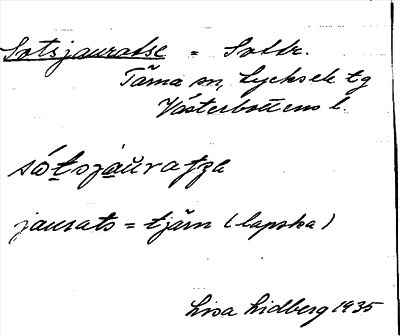 Sotsjauratse = Sottr.
Tärna sn, Lycksele tg
Västerbottens l.
sótsjauratza
jaurats = tjärn (lapska)
Lisa Lidberg 1935